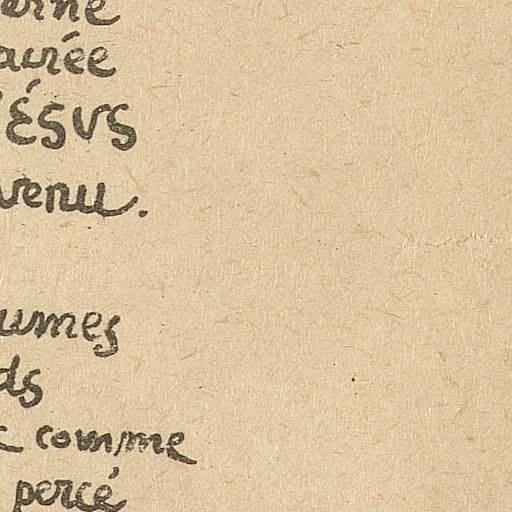 erne
aurée
ÉSUS
venu.
umes
ds
comme
percé